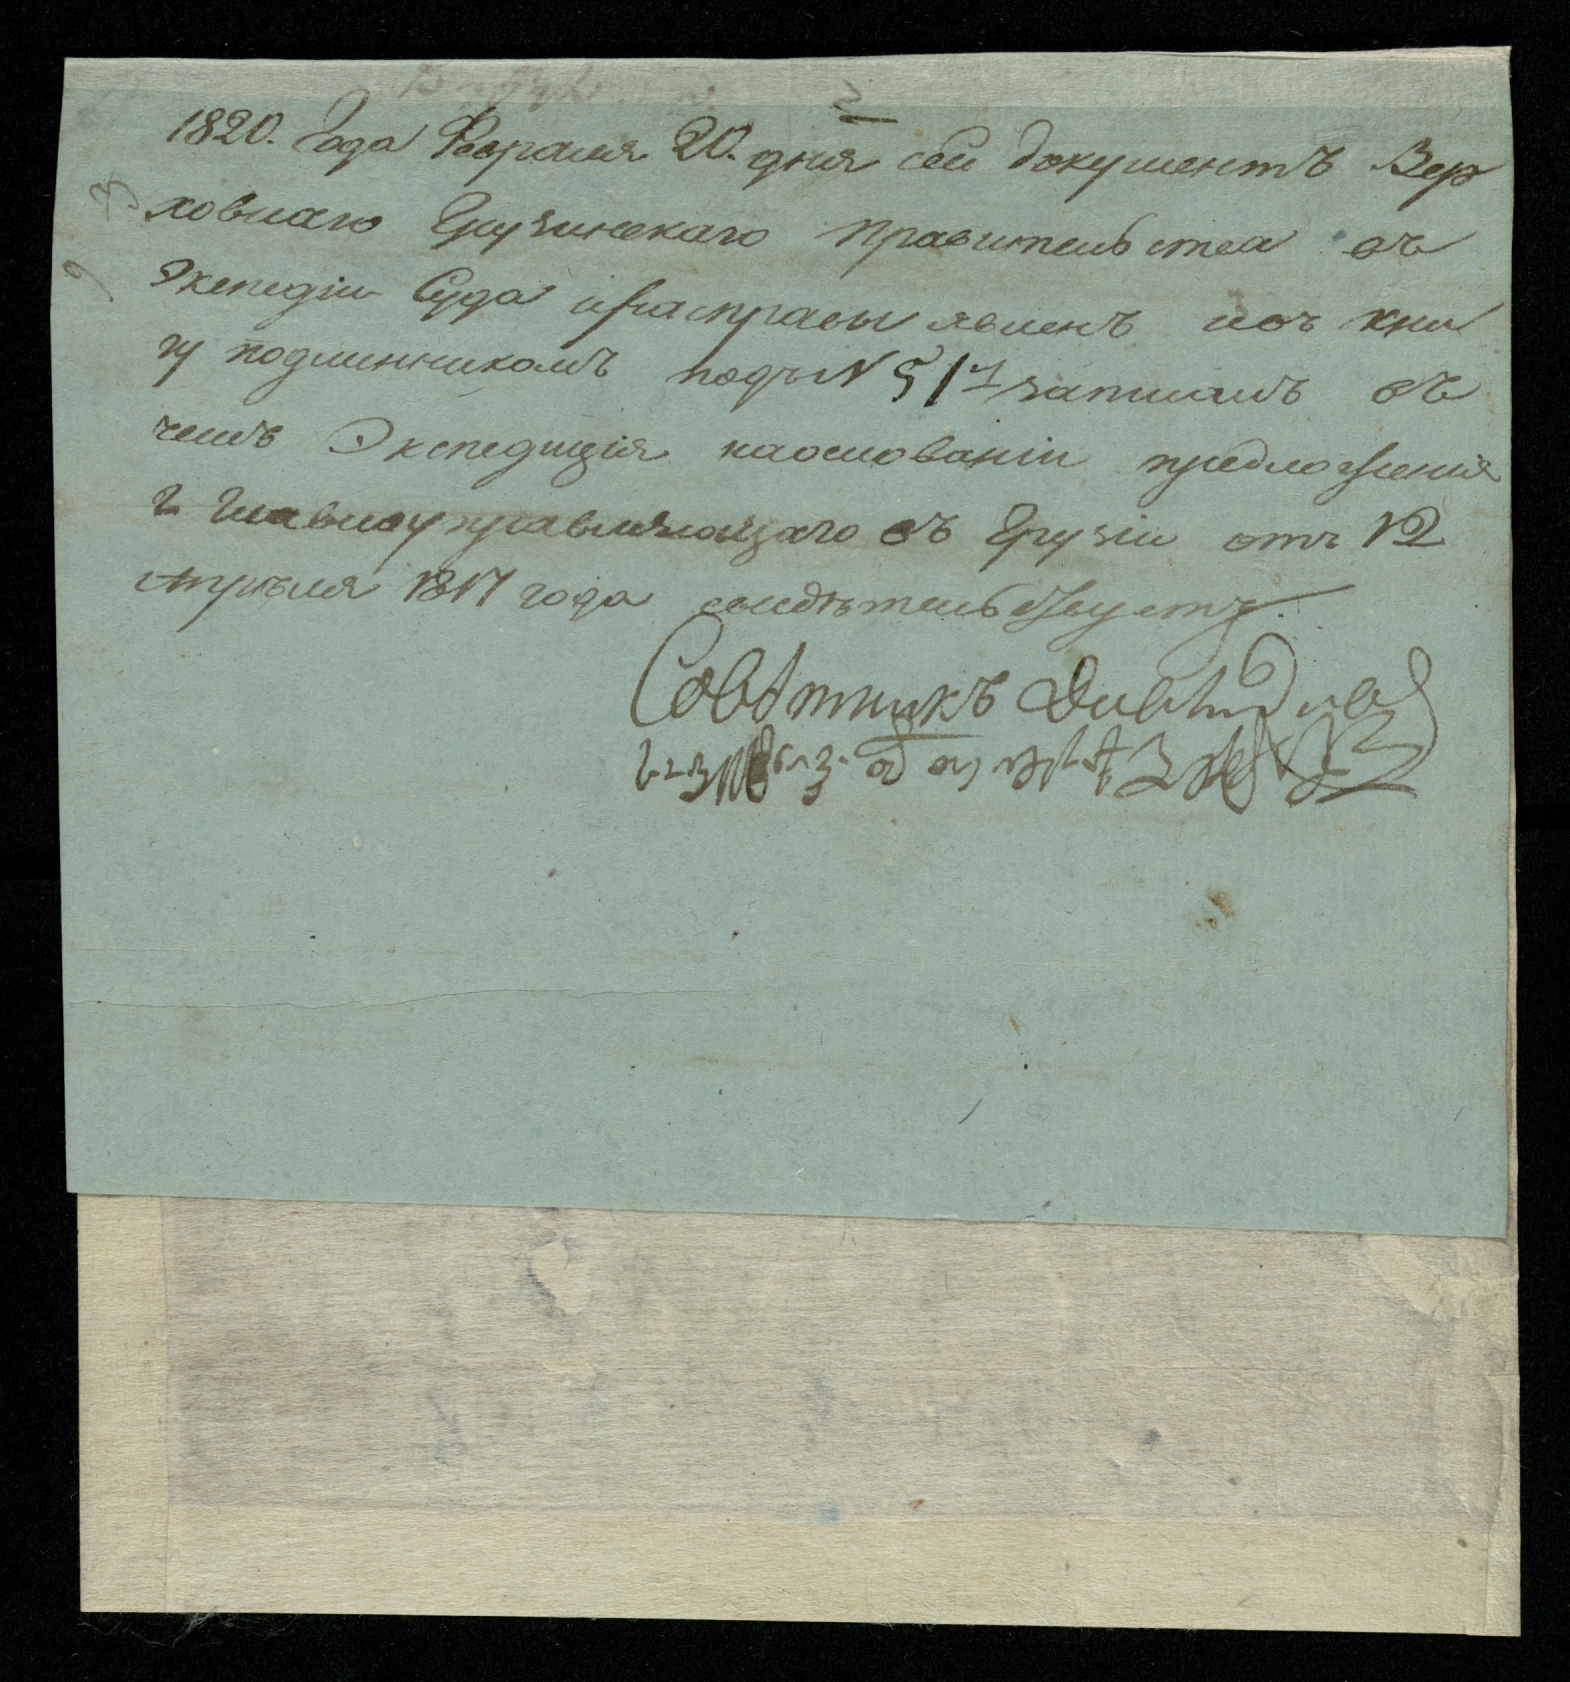 1820. Года Февраля 20. дня сей документъ Вер
ховнаго Грузинскаго Правительства въ
Экспедіи Суда и расправы явленъ ивъ кни
гу подлинникомъ подъ N 517 записанъ въ
чемъ Экспедиція наосновании предложения
г. Главноуправляющаго въ Грузіи отъ 12
Апрѣля 1817 года свидѣтельствуетъ.
Совѣтникъ